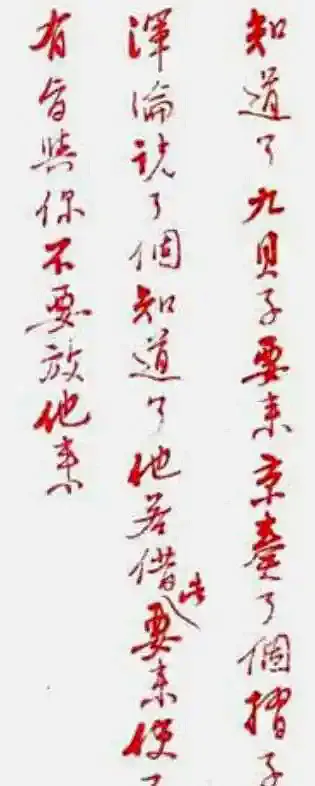 知道了九貝子要來京奏了個摺子
渾淪說了個知道了他若借此要來使
有旨與你不要放他來